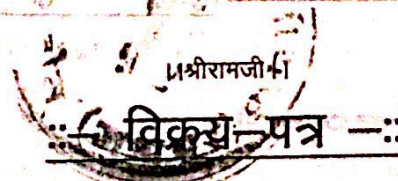 ।।श्रीरामजी।।
::— विक्रय—पत्र —::